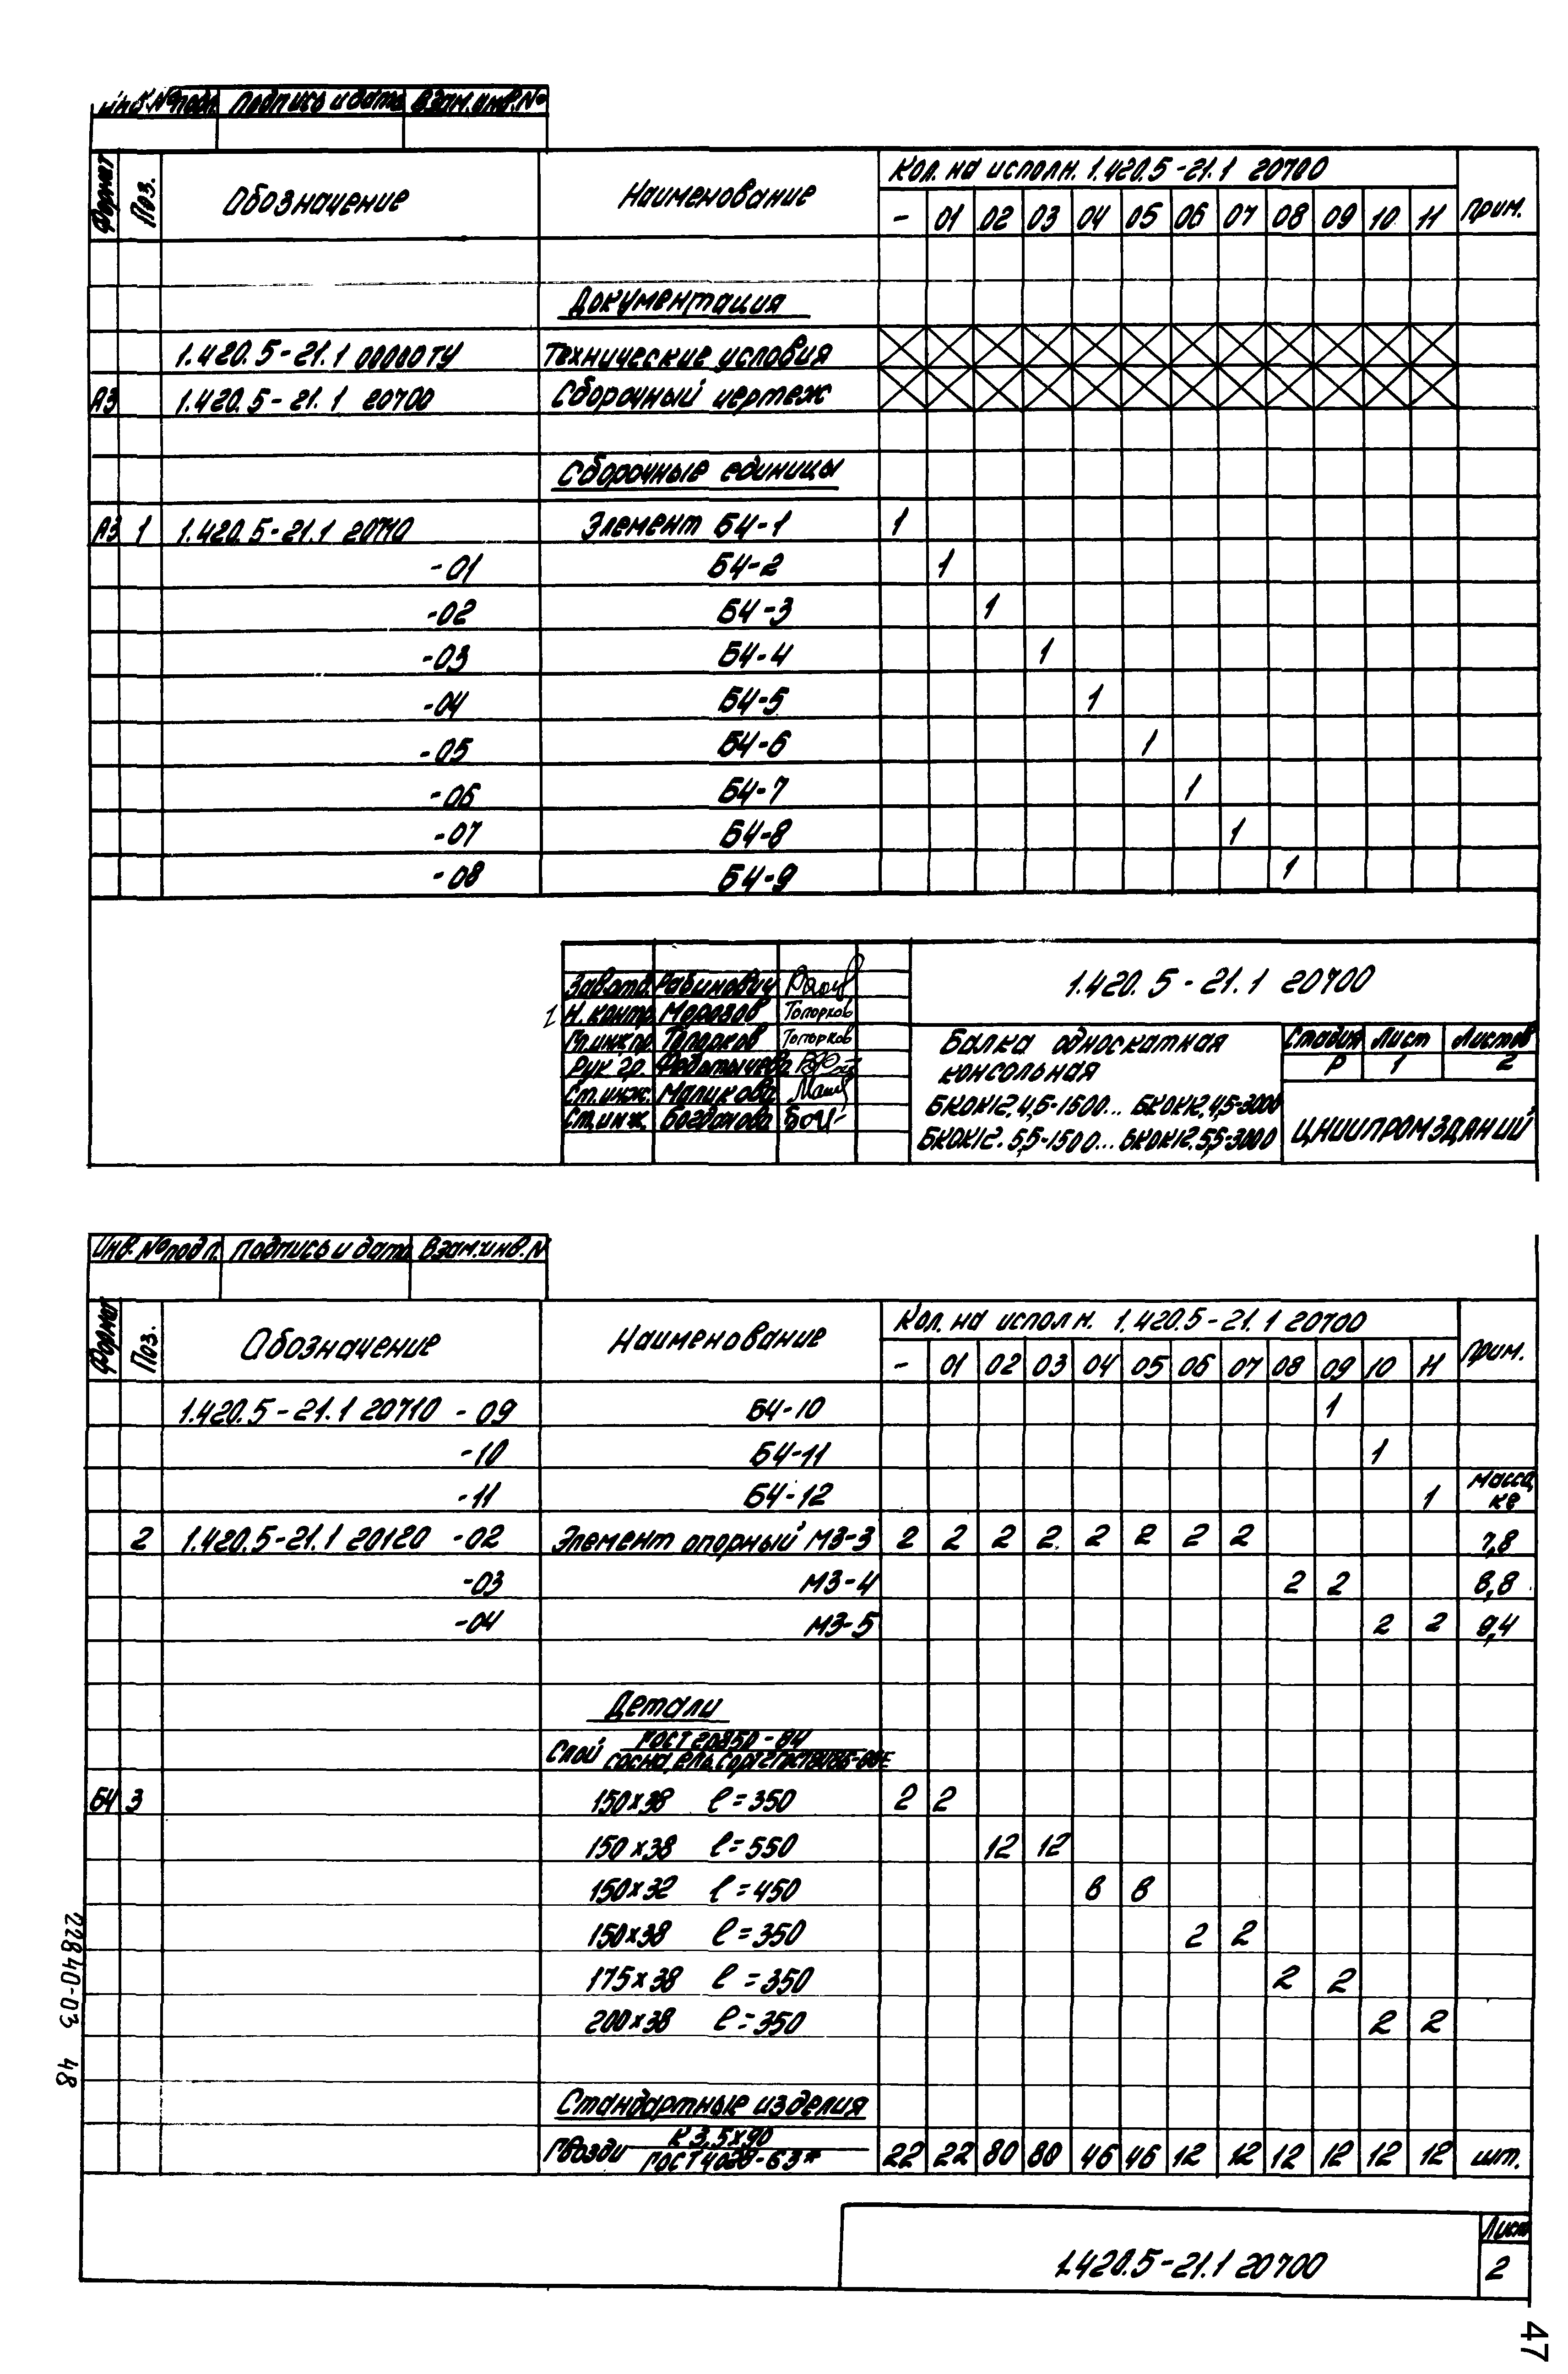 Инв.№подл. Подпись и дата Взам.инв.№
Формат Поз. Обозначение Наименование Кол. на исполн. 1.420.5-21.1 20700 Прим.
- 01 02 03 04 05 06 07 08 09 10 11
Документация
1.420.5-21.1 00000ТУ Технические условия
А3 1.420.5-21.1 20700 Сборочный чертеж
Сборочные единицы
А3 1 1.420.5-21.1 20710 Элемент Б4-1 1
-01 Б4-2 1
-02 Б4-3 1
-03 Б4-4 1
-04 Б4-5 1
-05 Б4-6 1
-06 Б4-7 1
-07 Б4-8 1
-08 Б4-9 1
Зав.отд. Рабинович
Н.контр. Морозов Топорков
Гл.инж.пр. Топорков Топорков
Рук гр.
Ст.инж. Маликова
Ст.инж. Богданова
1.420.5-21.1 20700
Балка односкатная
консольная
БКОК12.4,5-1500... БКОК12.4,5-3000
БКОК12.5,5-1500... БКОК12.5,5-3000
Стадия Лист Листов
Р 1 2
ЦНИИПРОМЗДАНИЙ
Инв.№подл. Подпись и дата Взам.инв.№
Формат Поз. Обозначение Наименование Кол. на исполн. 1.420.5-21.1 20700 Прим.
- 01 02 03 04 05 06 07 08 09 10 11
1.420.5-21.1 20710 -09 Б4-10 1
-10 Б4-11 1
-11 Б4-12 1 Масса, кг
2 1.420.5-21.1 20120 -02 Элемент опорный М3-3 2 2 2 2 2 2 2 2 7,8
-03 М3-4 2 2 8,8
-04 М3-5 2 2 9,4
Детали
Слой ГОСТ 20850-84
сосна, ель. Сорт 2
Б4 3 150×38 ℓ=350 2 2
150×38 ℓ=550 12 12
150×32 ℓ=450 8 8
150×38 ℓ=350 2 2
175×38 ℓ=350 2 2
200×38 ℓ=350 2 2
Стандартные изделия
Гвозди К 3,5×90
ГОСТ 4028-63*
22 22 80 80 46 46 12 12 12 12 12 12 шт.
1.420.5-21.1 20700
Лист
2
22840-03 48
47